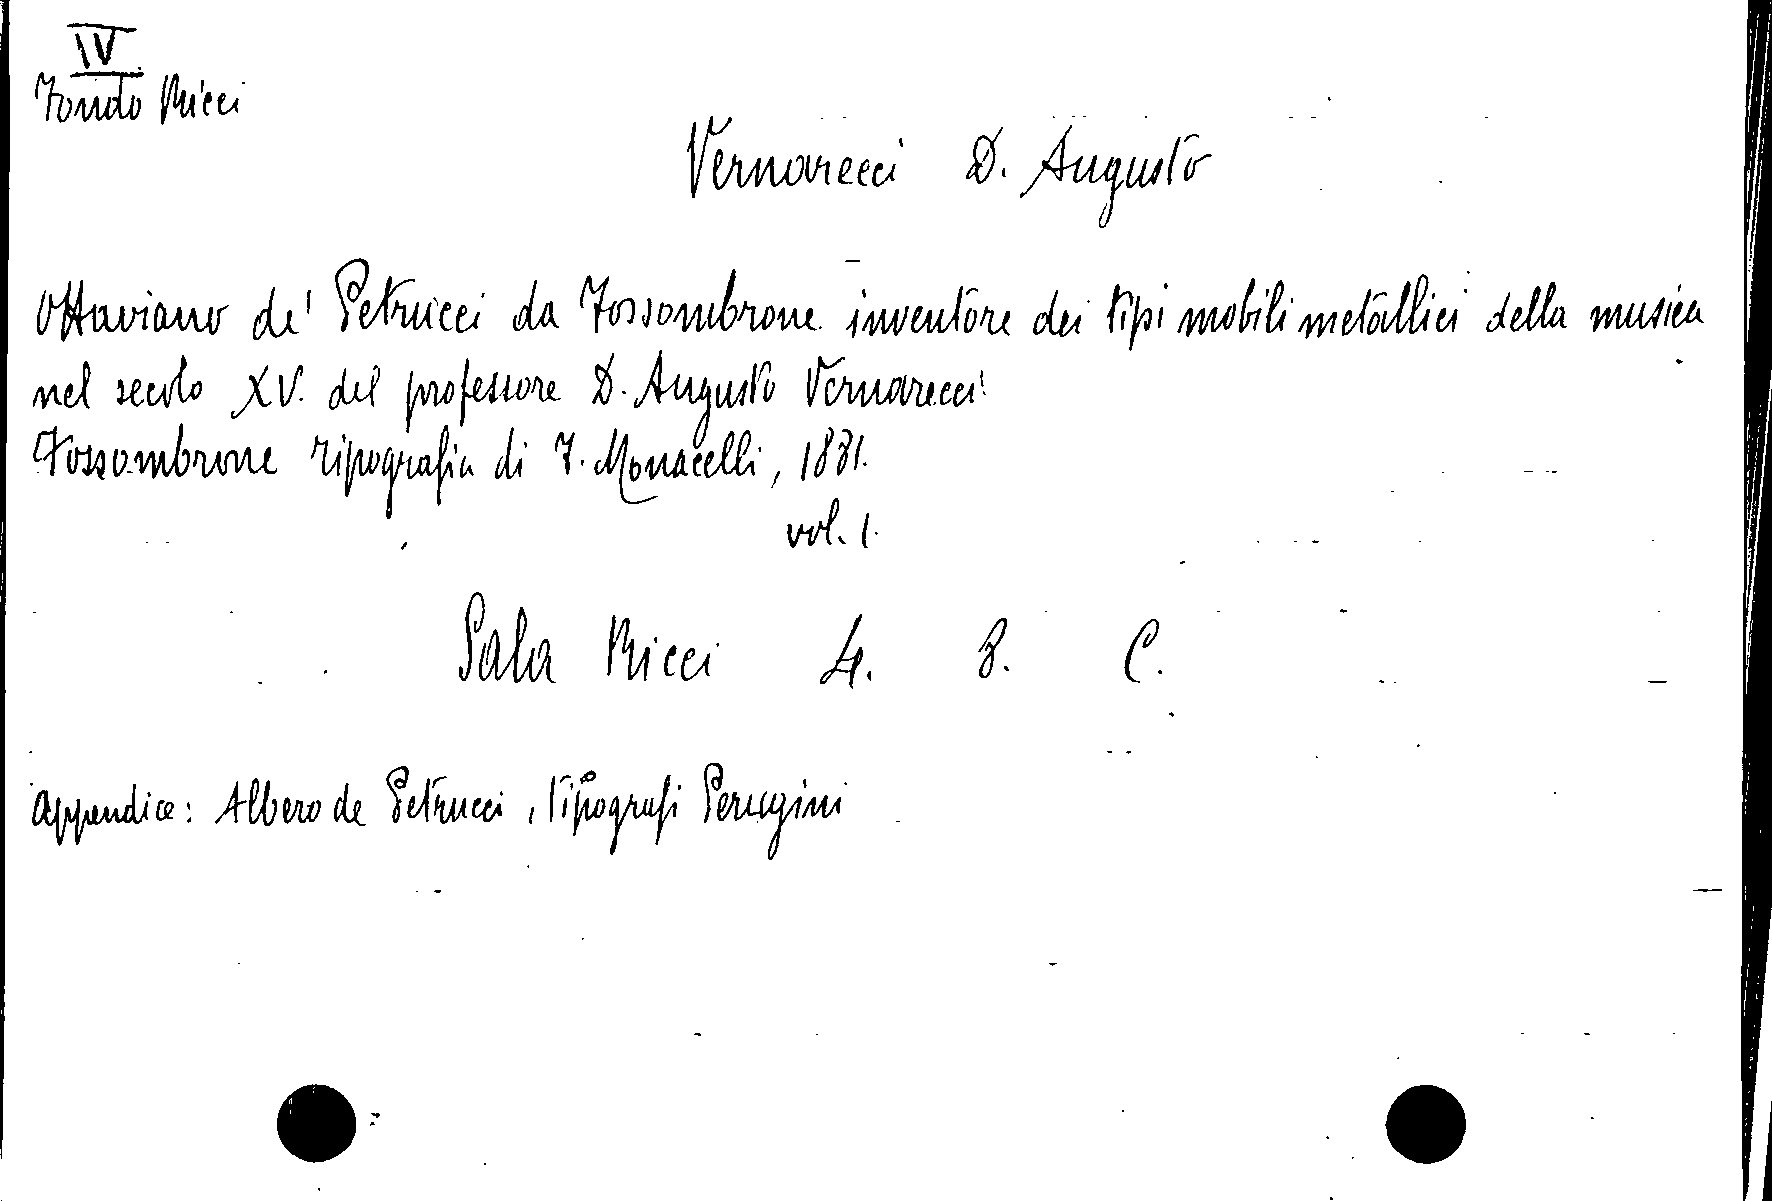 IV
Fondo Ricci
Vernarecci D. Augusto
Ottaviano de' Petrucci da Fossombrone inventore dei tipi mobili metallici della musica
nel secolo XV. del professore D. Augusto Vernarecci
Fossombrone Tipografia di F. Monacelli, 1881.
vol. 1.
Sala Ricci 4. 8. C.
Appendice: Albero de Petrucci, Tipografi Perugini